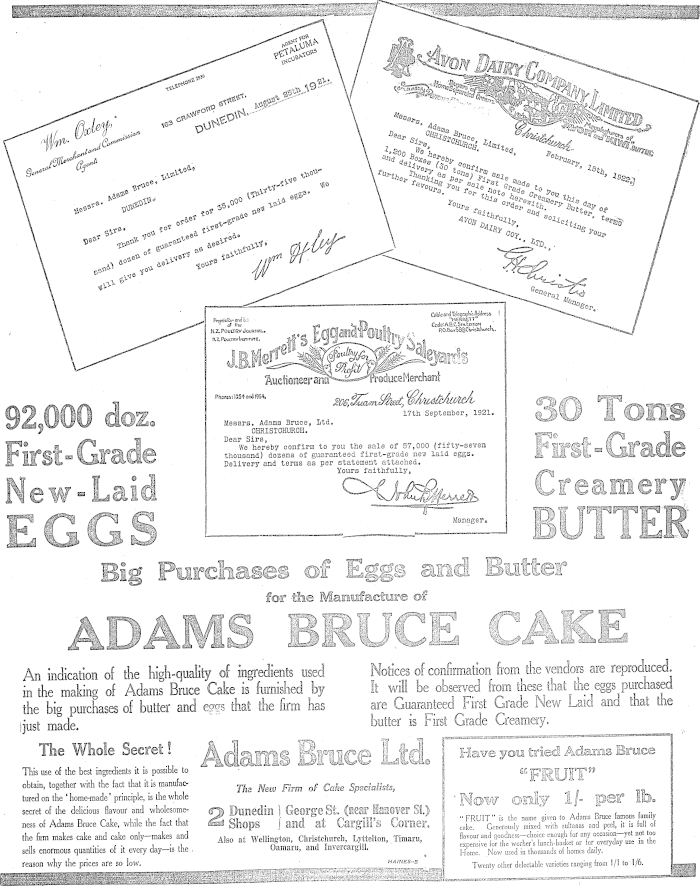 TELEPHONE
AGENT FOR
PETALUMA
INCUBATORS
Wm. Oxley,
General Merchant and Commission
Agent
103 CRAWFORD STREET,
DUNEDIN, August 25th 1921.
Messrs. Adams Bruce, Limited,
DUNEDIN.
Dear Sirs,
Thank you for order for 35,000 (Thirty-five thou-
sand) dozen of guaranteed first-grade new laid eggs. We
will give you delivery as desired.
Yours faithfully,
Wm Oxley
AVON DAIRY COMPANY LIMITED
Christchurch
February, 15th, 1922.
Messrs. Adams Bruce, Limited,
CHRISTCHURCH.
Dear Sirs,
We hereby confirm sale made to you this day of
1,200 Boxes (30 tons) First Grade Creamery Butter, terms
and delivery as per sale note herewith.
Thanking you for this order and soliciting your
further favours.
Yours faithfully,
AVON DAIRY COY., LTD.,
General Manager.
of the
N.Z. POULTRY JOURNAL.
N.Z. POULTRY INSTITUTE.
Cable and Telegraphic Address
"MERRETT"
J.B. Merrett's Egg and Poultry Saleyards
Poultry for
Profit
Auctioneer and Produce Merchant
206, Tuam Street, Christchurch
17th September, 1921.
Messrs. Adams Bruce, Ltd.
CHRISTCHURCH.
Dear Sirs,
We hereby confirm to you the sale of 57,000 (fifty-seven
thousand) dozens of guaranteed first-grade new laid eggs.
Delivery and terms as per statement attached.
Yours faithfully,
Manager.
92,000 doz.
First-Grade
New-Laid
EGGS
30 Tons
First-Grade
Creamery
BUTTER
Big Purchases of Eggs and Butter
for the Manufacture of
ADAMS BRUCE CAKE
An indication of the high-quality of ingredients used
in the making of Adams Bruce Cake is furnished by
the big purchases of butter and eggs that the firm has
just made.
Notices of confirmation from the vendors are reproduced.
It will be observed from these that the eggs purchased
are Guaranteed First Grade New Laid and that the
butter is First Grade Creamery.
The Whole Secret!
This use of the best ingredients it is possible to
obtain, together with the fact that it is manufac-
tured on the "home-made" principle, is the whole
secret of the delicious flavour and wholesome-
ness of Adams Bruce Cake, while the fact that
the firm makes cake and cake only—makes and
sells enormous quantities of it every day—is the
reason why the prices are so low.
Adams Bruce Ltd.
The New Firm of Cake Specialists,
2 Dunedin Shops
George St. (near Hanover St.)
and at Cargill's Corner.
Also at Wellington, Christchurch, Lyttelton, Timaru,
Oamaru, and Invercargill.
HAINES-5
Have you tried Adams Bruce
"FRUIT"
Now only 1/- per lb.
"FRUIT" is the name given to Adams Bruce famous family
cake. Generously mixed with sultanas and peel, it is full of
flavour and goodness—choice enough for any occasion—yet not too
expensive for the worker's lunch-basket or for everyday use in the
Home. Now used in thousands of homes daily.
Twenty other delectable varieties ranging from 1/1 to 1/6.